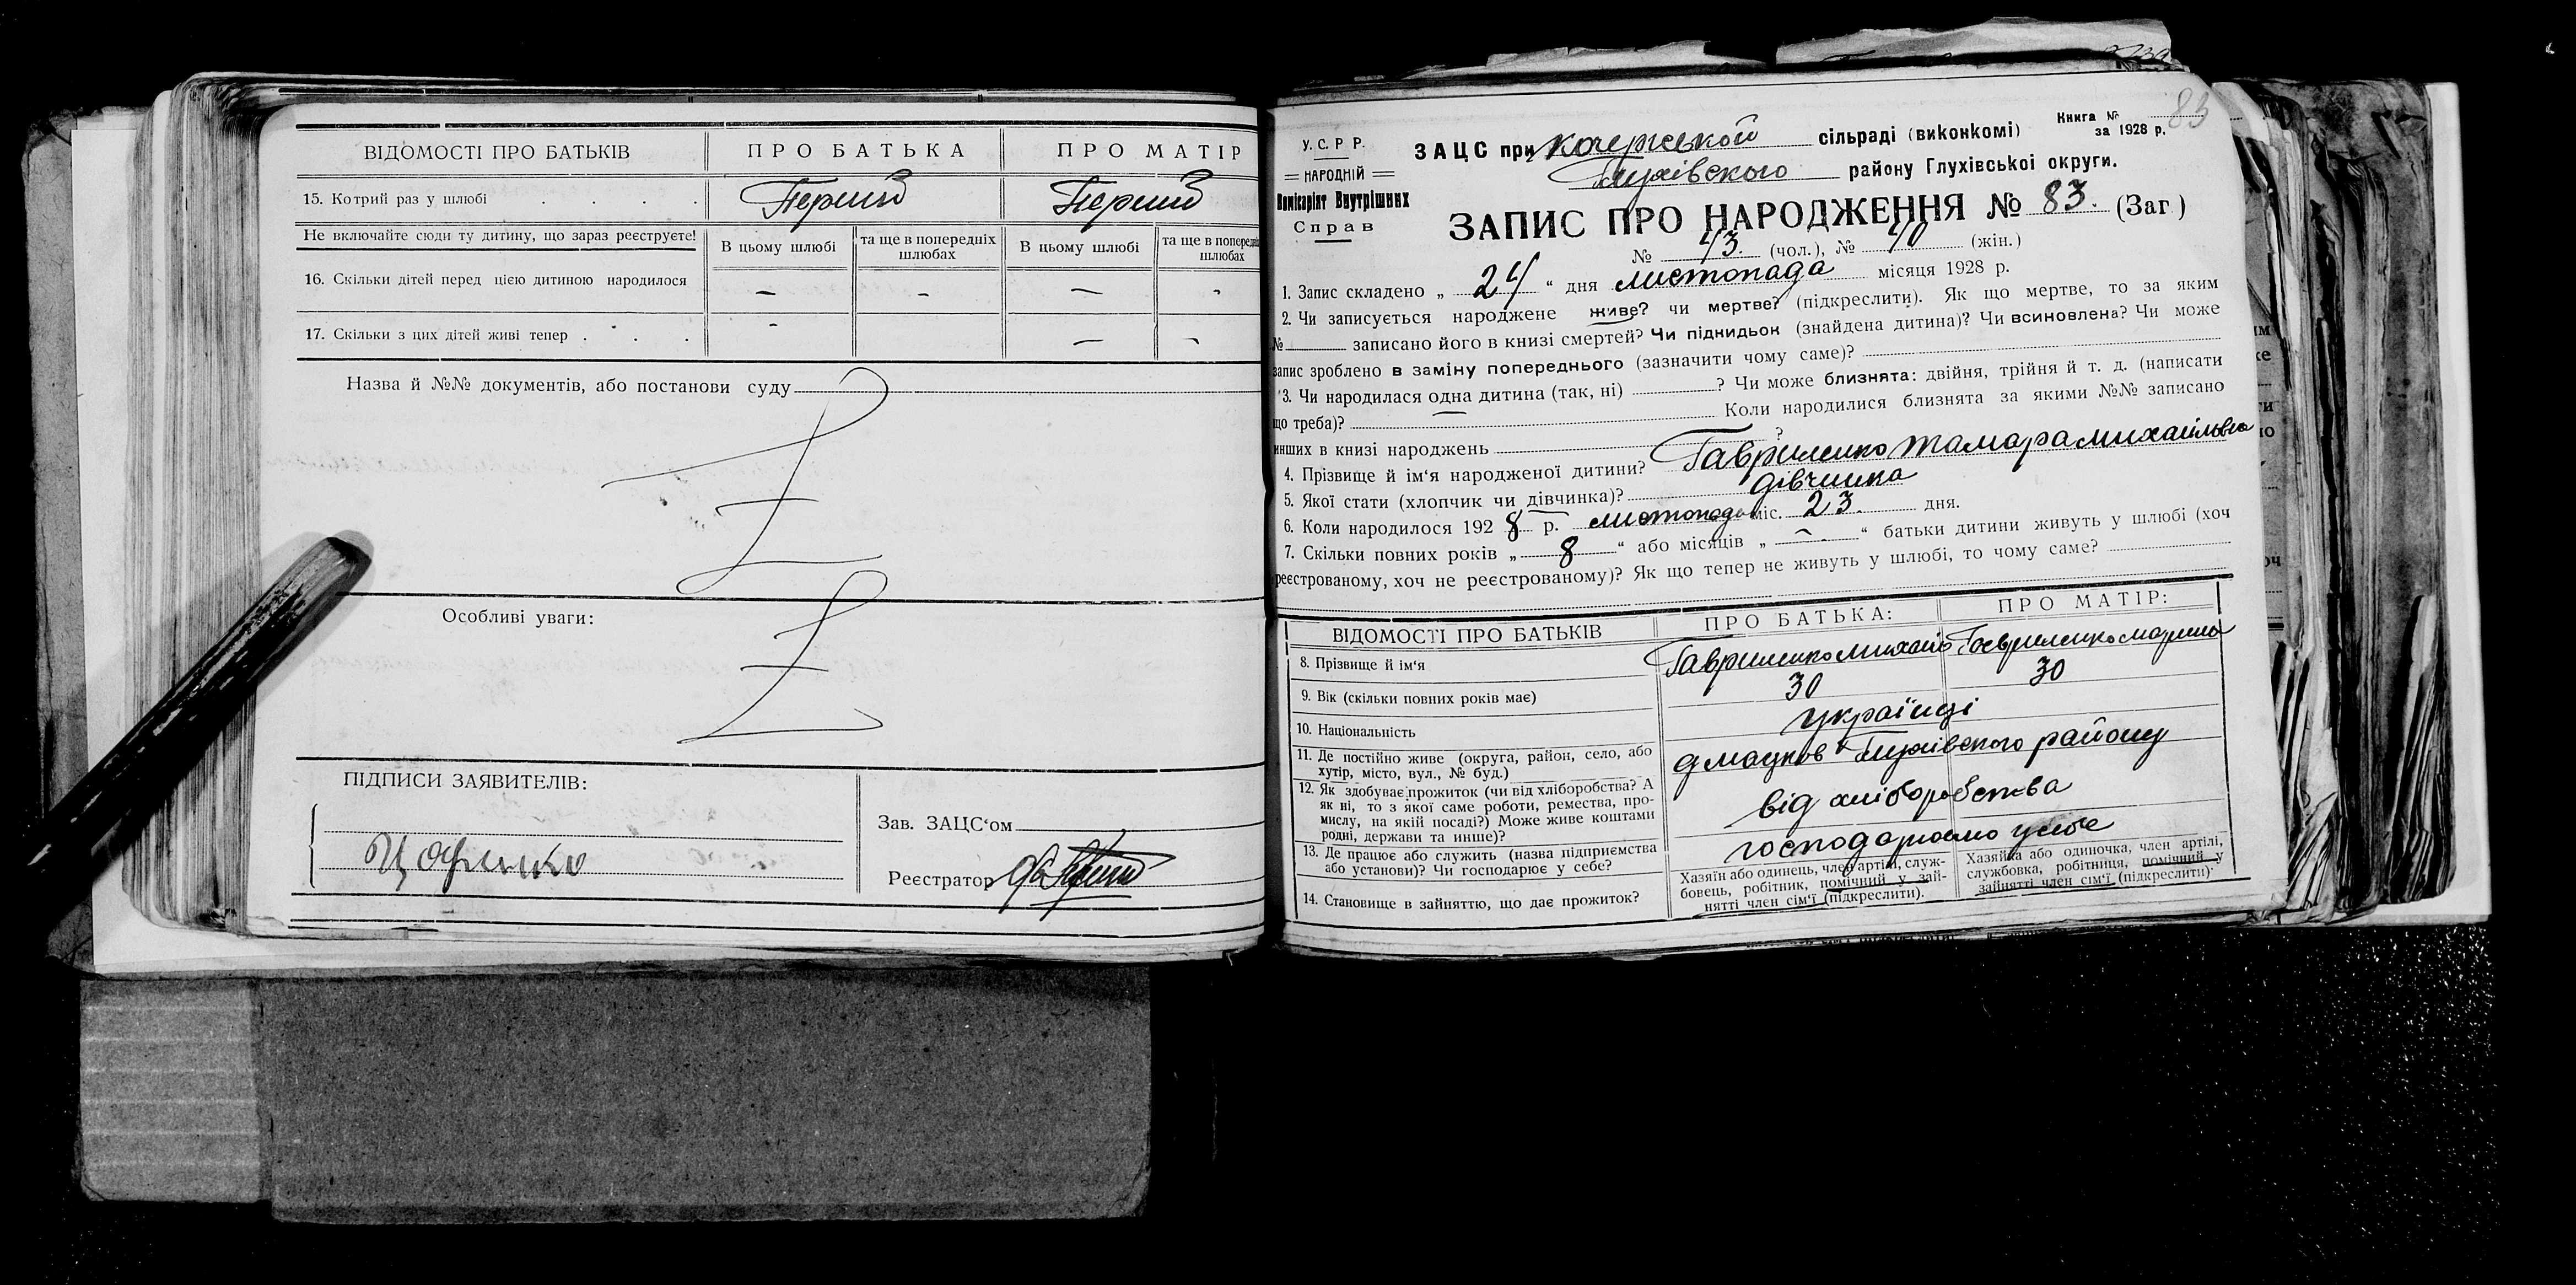 ВІДОМОСТІ ПРО БАТЬКІВ
ПРО БАТЬКА
ПРО МАТІР
15. Котрий раз у шлюбі
Перший
Перший
Не включайте сюди ту дитину, що зараз реєструєте!
В цьому шлюбі
та ще в попередніх шлюбах
В цьому шлюбі
та ще в попередніх шлюбах
16. Скільки дітей перед цією дитиною народилося
— — — -
17. Скільки з цих дітей живі тепер
- — -
Назва й №№ документів, або постанови суду
Z
Особливі уваги:
Z
ПІДПИСИ ЗАЯВИТЕЛІВ:
Зав. ЗАЦС‘ом
Реєстратор
83
Книга №
за 1928 р.
У.С.Р Р.
НАРОДНІЙ
Комісаріят Внутрішних
Справ
ЗАЦС при сільраді (виконкомі)
Глухівского району Глухівської округи.
ЗАПИС ПРО НАРОДЖЕННЯ № 83. (Заг)
№ 43. (чол.), № 40 (жін.)
1. Запис складено „ 24 “ дня листопада місяця 1928 р.
2. Чи записується народжене живе? чи мертве? (підкреслити). Як що мертве, то за яким
№ записано його в книзі смертей? Чи підкидьок (знайдена дитина)? Чи всиновлена? Чи може
запис зроблено в заміну попереднього (зазначити чому саме)?
3. Чи народилася одна дитина (так, ні) ? Чи може близнята: двійня, трійня й т. д. (написати
що треба)? Коли народилися близнята за якими №№ записано
инших в книзі народжень ?
4. Прізвище й ім‘я народженої дитини? Гавриленко Тамара михайлівна
5. Якої стати (хлопчик чи дівчинка)? дівчинка
6. Коли народилося 192 8 р. листопада міс. 23. дня.
7. Скільки повних років „ 8 “ або місяців „ — “ батьки дитини живуть у шлюбі (хоч
реєстрованому, хоч не реєстрованому)? Як що тепер не живуть у шлюбі, то чому саме?
ВІДОМОСТІ ПРО БАТЬКІВ
ПРО БАТЬКА:
ПРО МАТІР:
8. Прізвище й ім‘я
Гавриленко михайло
Гавриленко марина
9. Вік (скільки повних років має)
30
30
10. Національність
українці
11. Де постійно живе (округа, район, село, або
хутір, місто, вул., № буд.)
Глухівского району
12. Як здобуває прожиток (чи від хліборобства? А
як ні, то з якої саме роботи, ремества, про-
мислу, на якій посаді?) Може живе коштами
родні, держави та инше)?
від хліборобства
13. Де працює або служить (назва підприємства
або установи)? Чи господарює у себе?
господарюємо у себе
14. Становище в зайняттю, що дає прожиток?
Хазяїн або одинець, член артілі, служ-
бовець, робітник, помічний у зай-
нятті член сім‘ї (підкреслити).
Хазяйка або одиночка, член артілі,
службовка, робітниця, помічний у
зайнятті член сім‘ї (підкреслити).